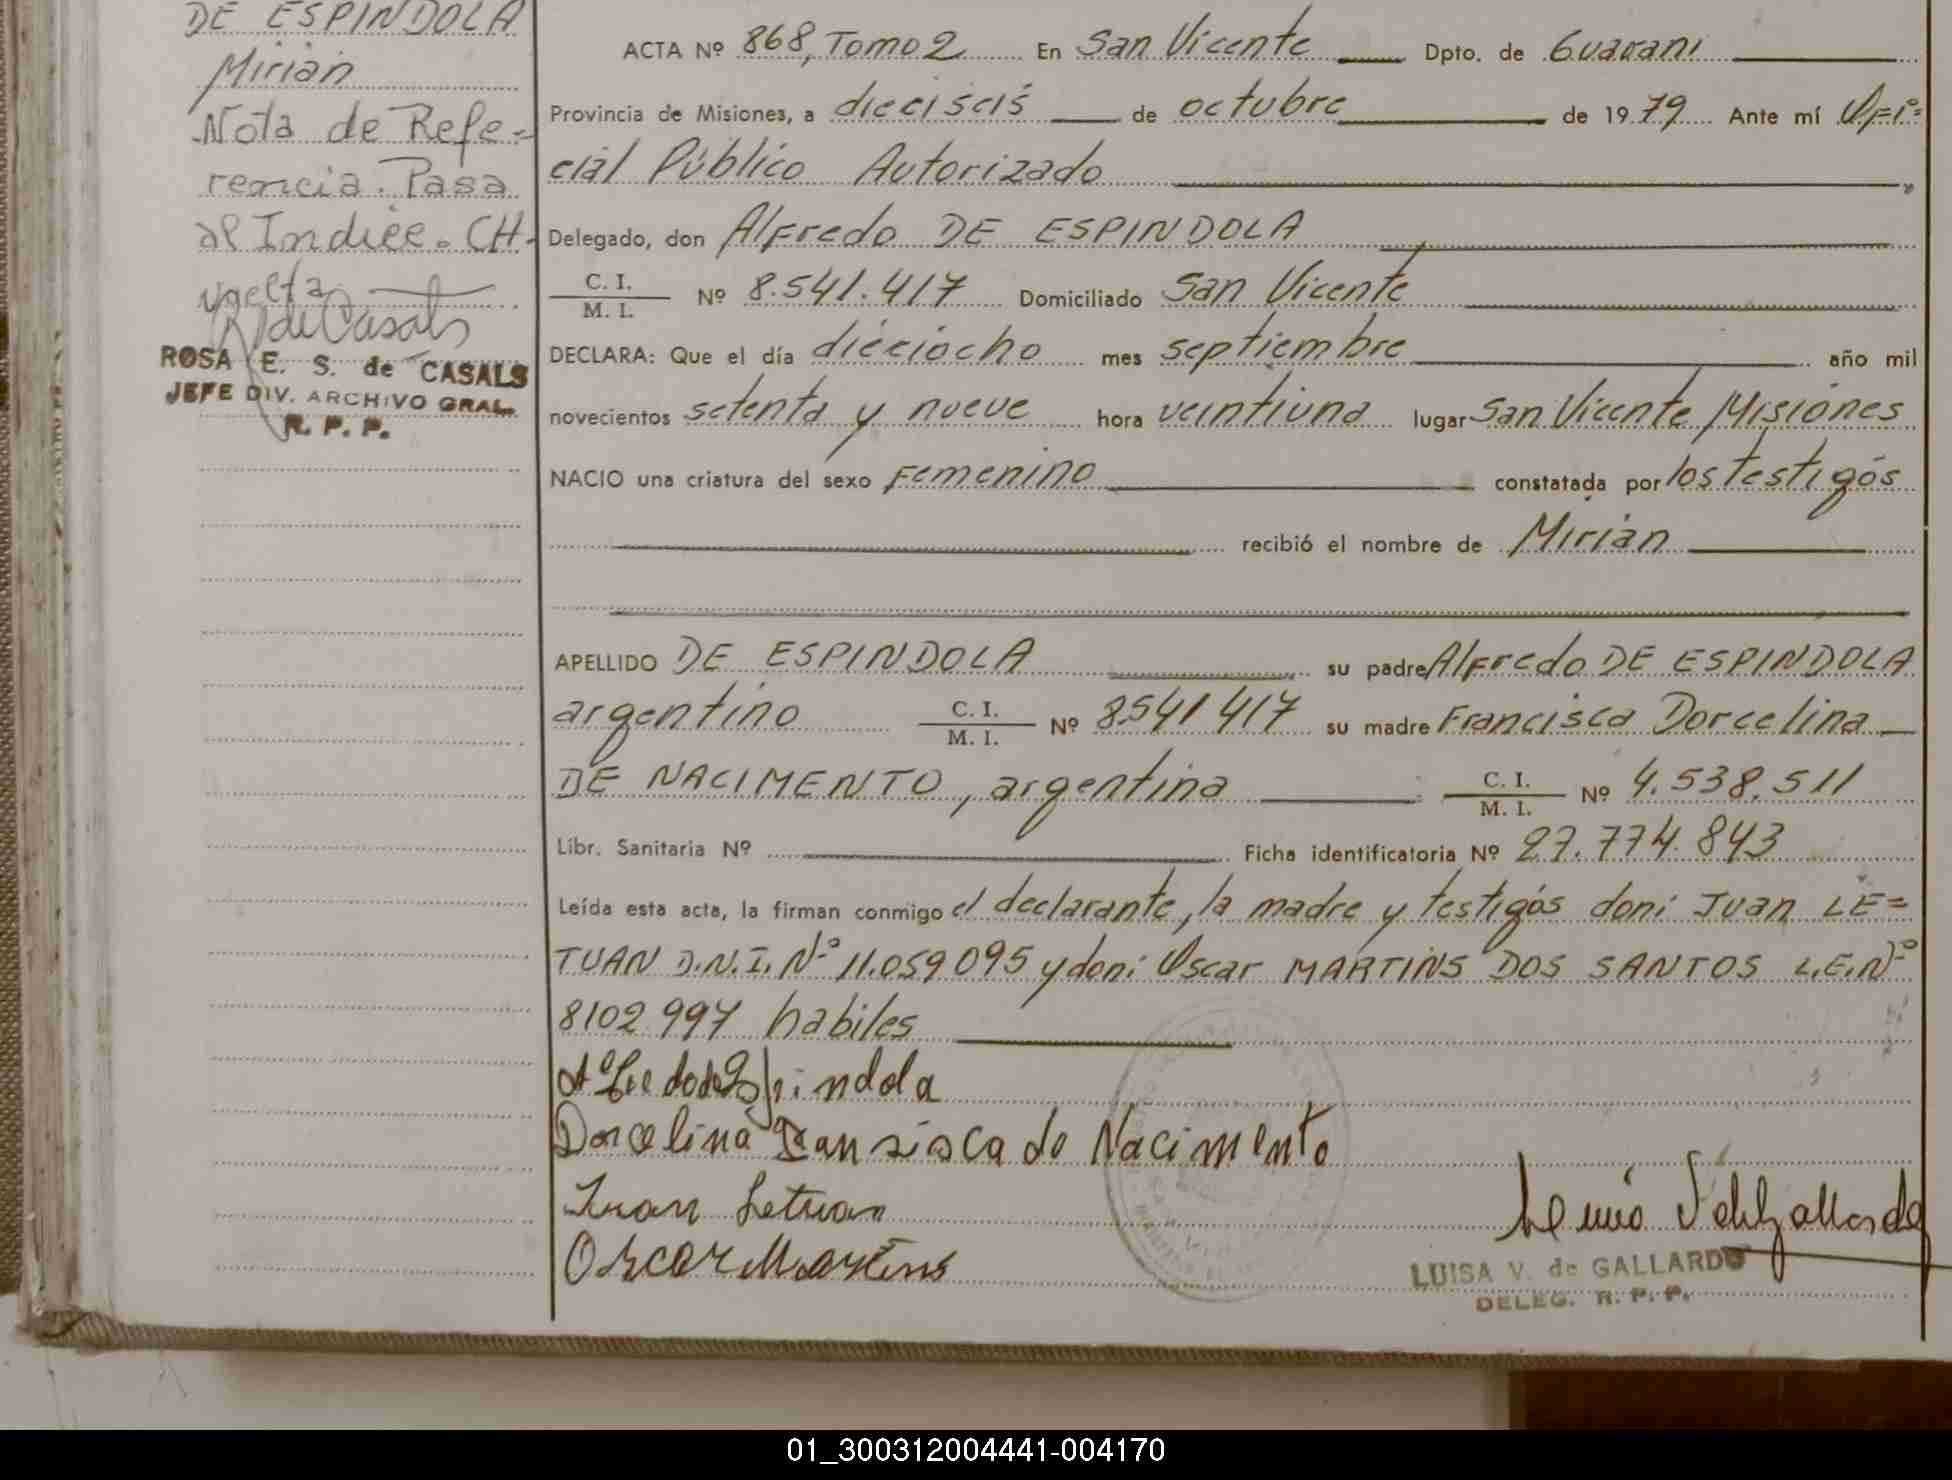 DE ESPINDOLA
Mirian
Nota de Refe=
rencia. Pasa
al Indice. CH.
vuelta
R de Casals
ROSA E. S. de CASALS
JEFE DIV. ARCHIVO GRAL.
R. P. P.
ACTA Nº 868, Tomo 2 En San Vicente Dpto. de Guarani
Provincia de Misiones, a dieciseis de octubre de 1979 Ante mí Ofi=
cial Público Autorizado
Delegado, don Alfredo DE ESPINDOLA
C. I.
M. I. Nº 8.541.417 Domiciliado San Vicente
DECLARA: Que el día dieciocho mes septiembre año mil
novecientos setenta y nueve hora veintiuna lugar San Vicente Misiones
NACIO una criatura del sexo Femenino constatada por los testigos
recibió el nombre de Mirian
APELLIDO DE ESPINDOLA su padre Alfredo DE ESPINDOLA
argentino C. I.
M. I. Nº 8541417 su madre Francisca Dorcelina
DE NACIMENTO, argentina C. I.
M. I. Nº 4.538.511
Libr. Sanitaria Nº Ficha identificatoria Nº 27.774.843
Leída esta acta, la firman conmigo el declarante, la madre y testigos don: Juan LE=
TUAN D.N.I. Nº 11.059.095 y don: Oscar MARTINS DOS SANTOS L.E.Nº
8102.997 habiles
Alfredo de Espindola
Dorcelina Fransisca de Nacimento
Juan Letuan
Oscar Martins
LUISA V. de GALLARDO
DELEG. R. P. P.
01_300312004441-004170